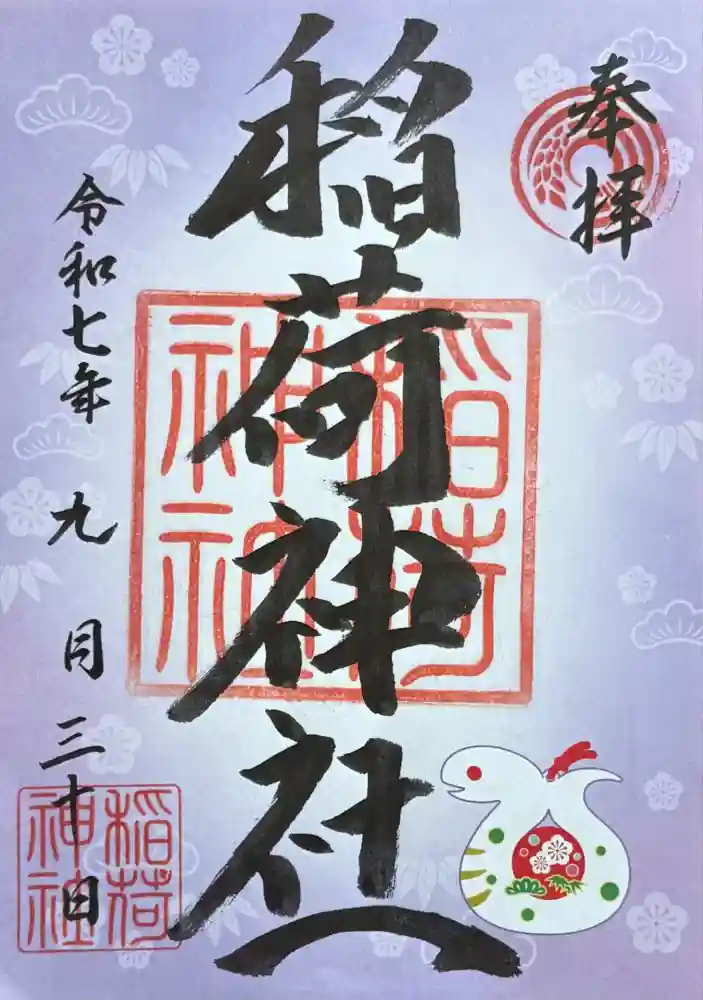 奉拝
稲荷神社
稲荷神社
令和七年 九 月 三十日
稲荷神社